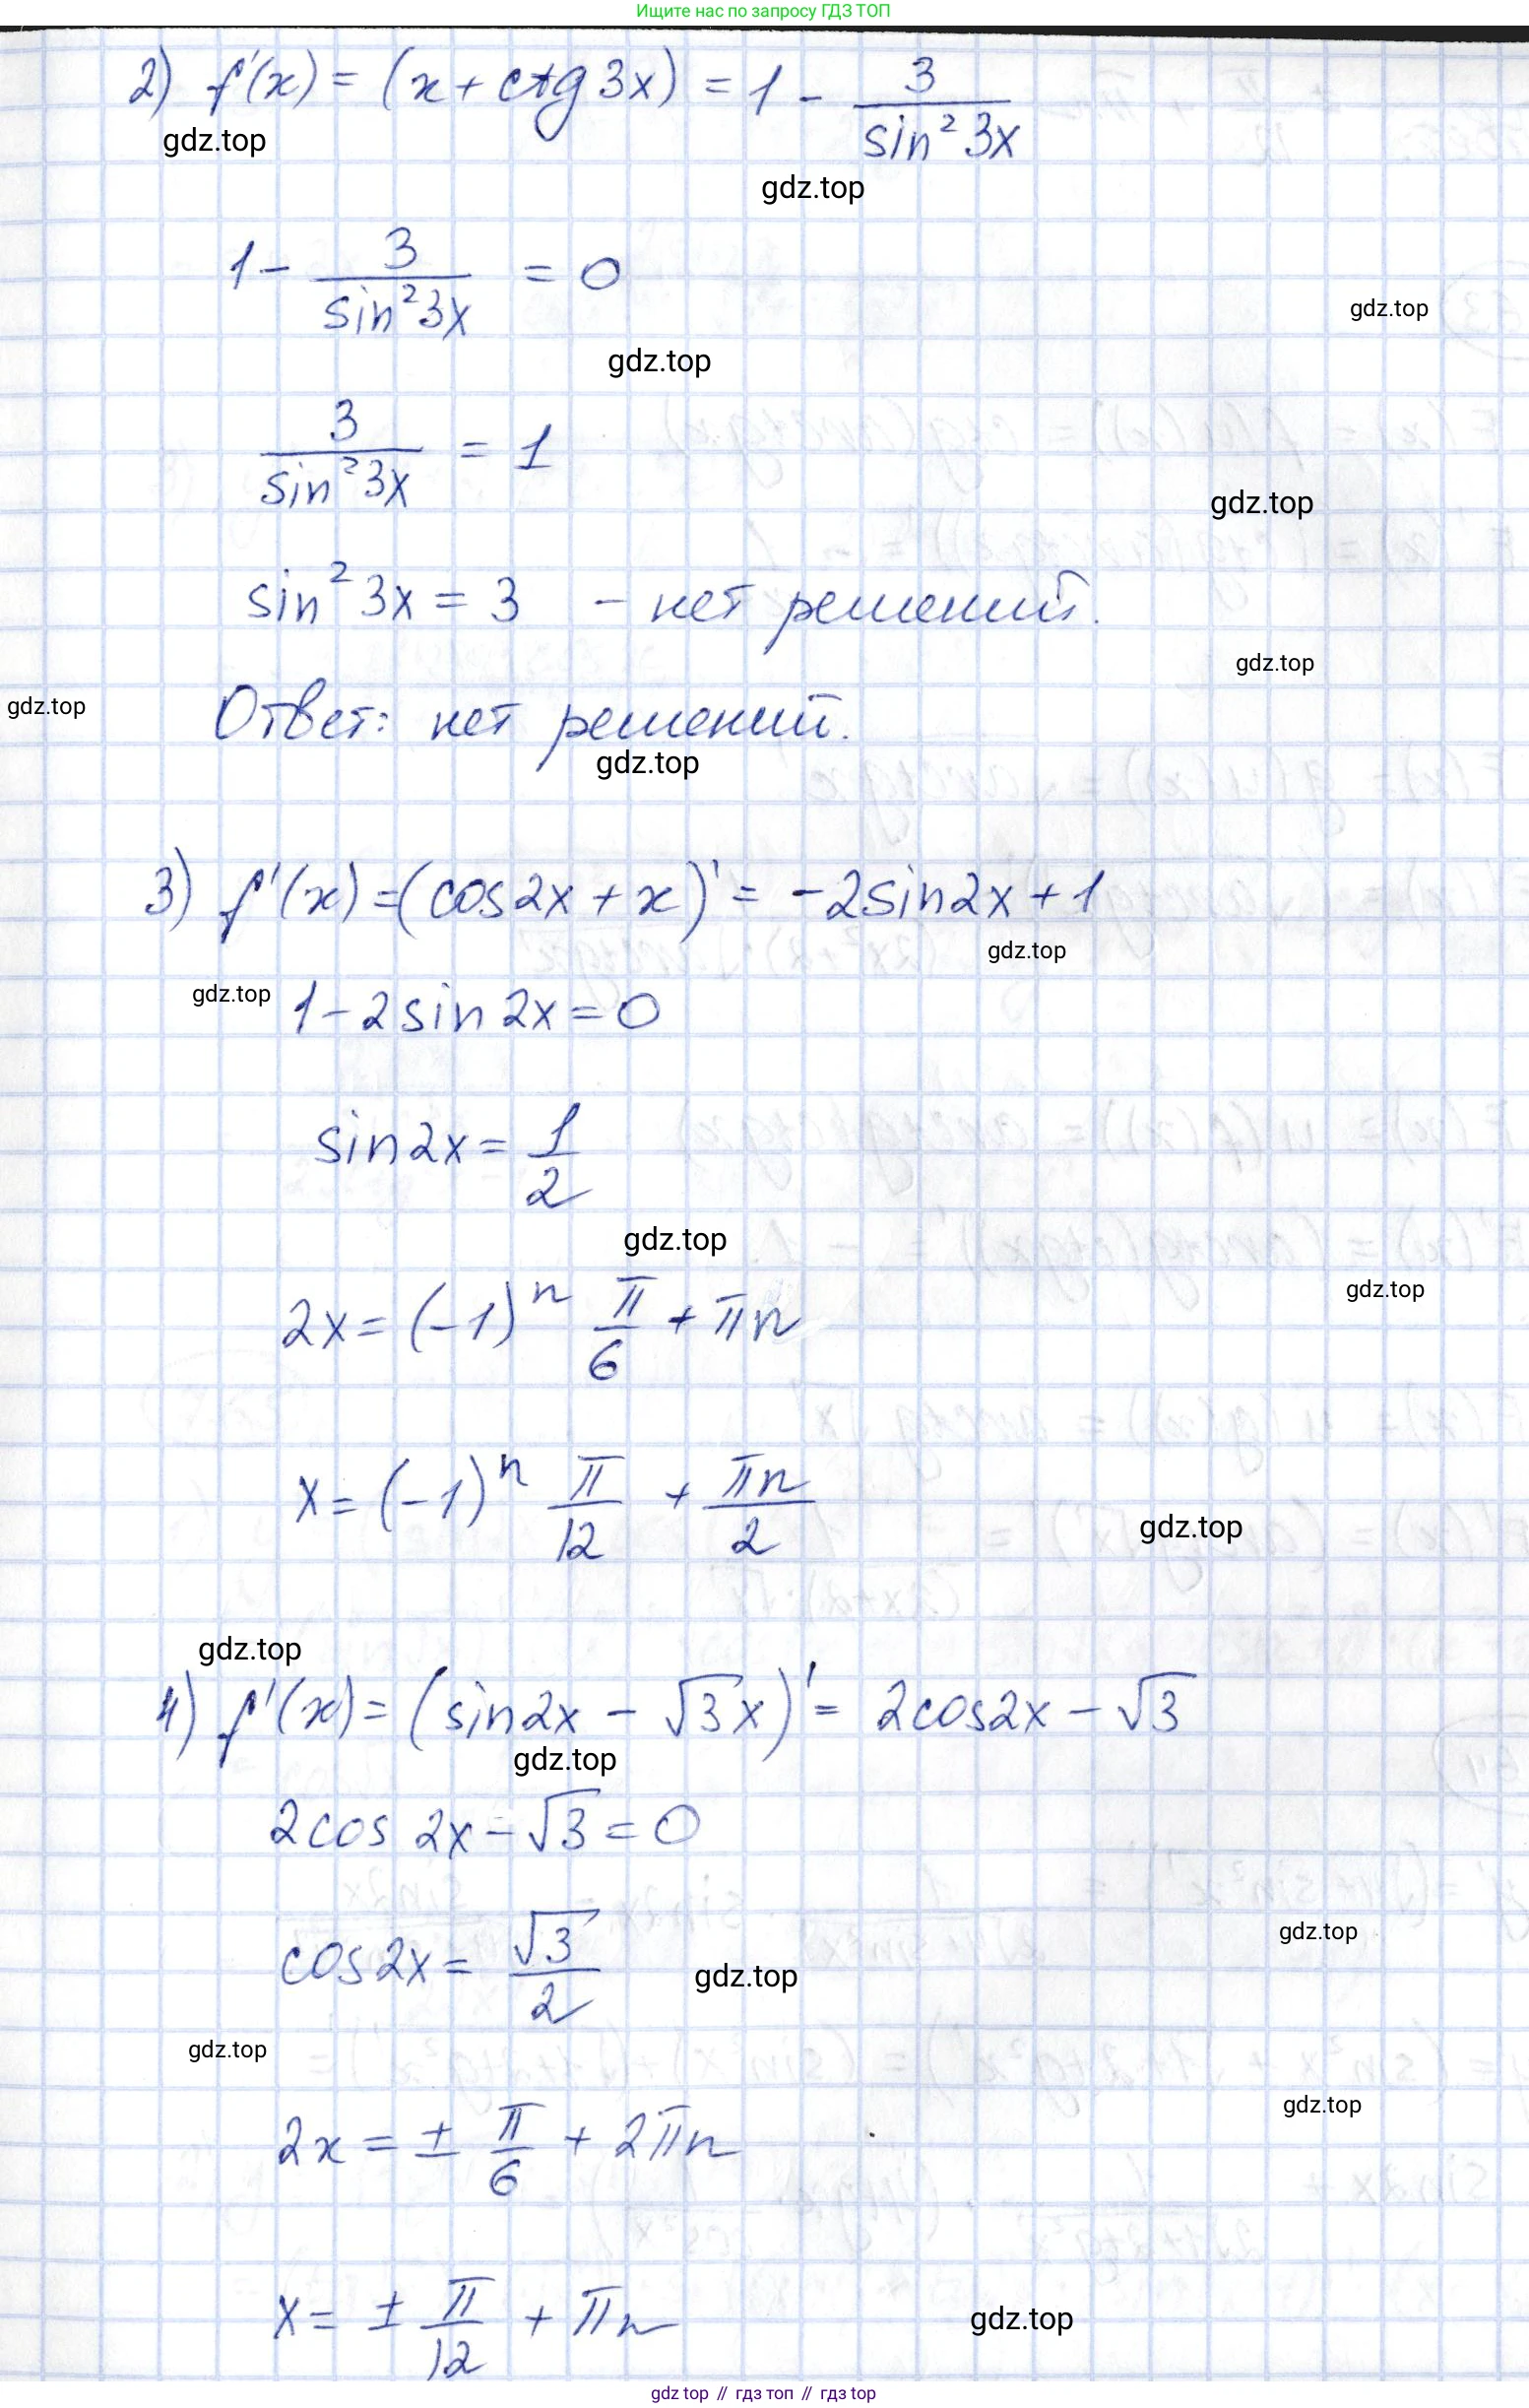 Ищите нас по запросу ГДЗ ТОП
2) f'(x) = (x + ctg 3x) = 1 - 3/sin² 3x
gdz.top
gdz.top
1 - 3/sin² 3x = 0
gdz.top
gdz.top
3/sin² 3x = 1
gdz.top
sin² 3x = 3 - нет решений.
gdz.top
gdz.top
Ответ: нет решений.
gdz.top
3) f'(x) = (cos2x + x)' = -2sin2x + 1
gdz.top
gdz.top
1 - 2 sin 2x = 0
sin2x = 1/2
gdz.top
gdz.top
2x = (-1)ⁿ π/6 + πn
x = (-1)ⁿ π/12 + πn/2
gdz.top
gdz.top
4) f'(x) = (sin2x - √3x)' = 2cos2x - √3
gdz.top
2cos 2x - √3 = 0
gdz.top
cos2x = √3/2
gdz.top
gdz.top
gdz.top
2x = ± π/6 + 2πn
x = ± π/12 + πn
gdz.top
gdz top // гдз топ // гдз top